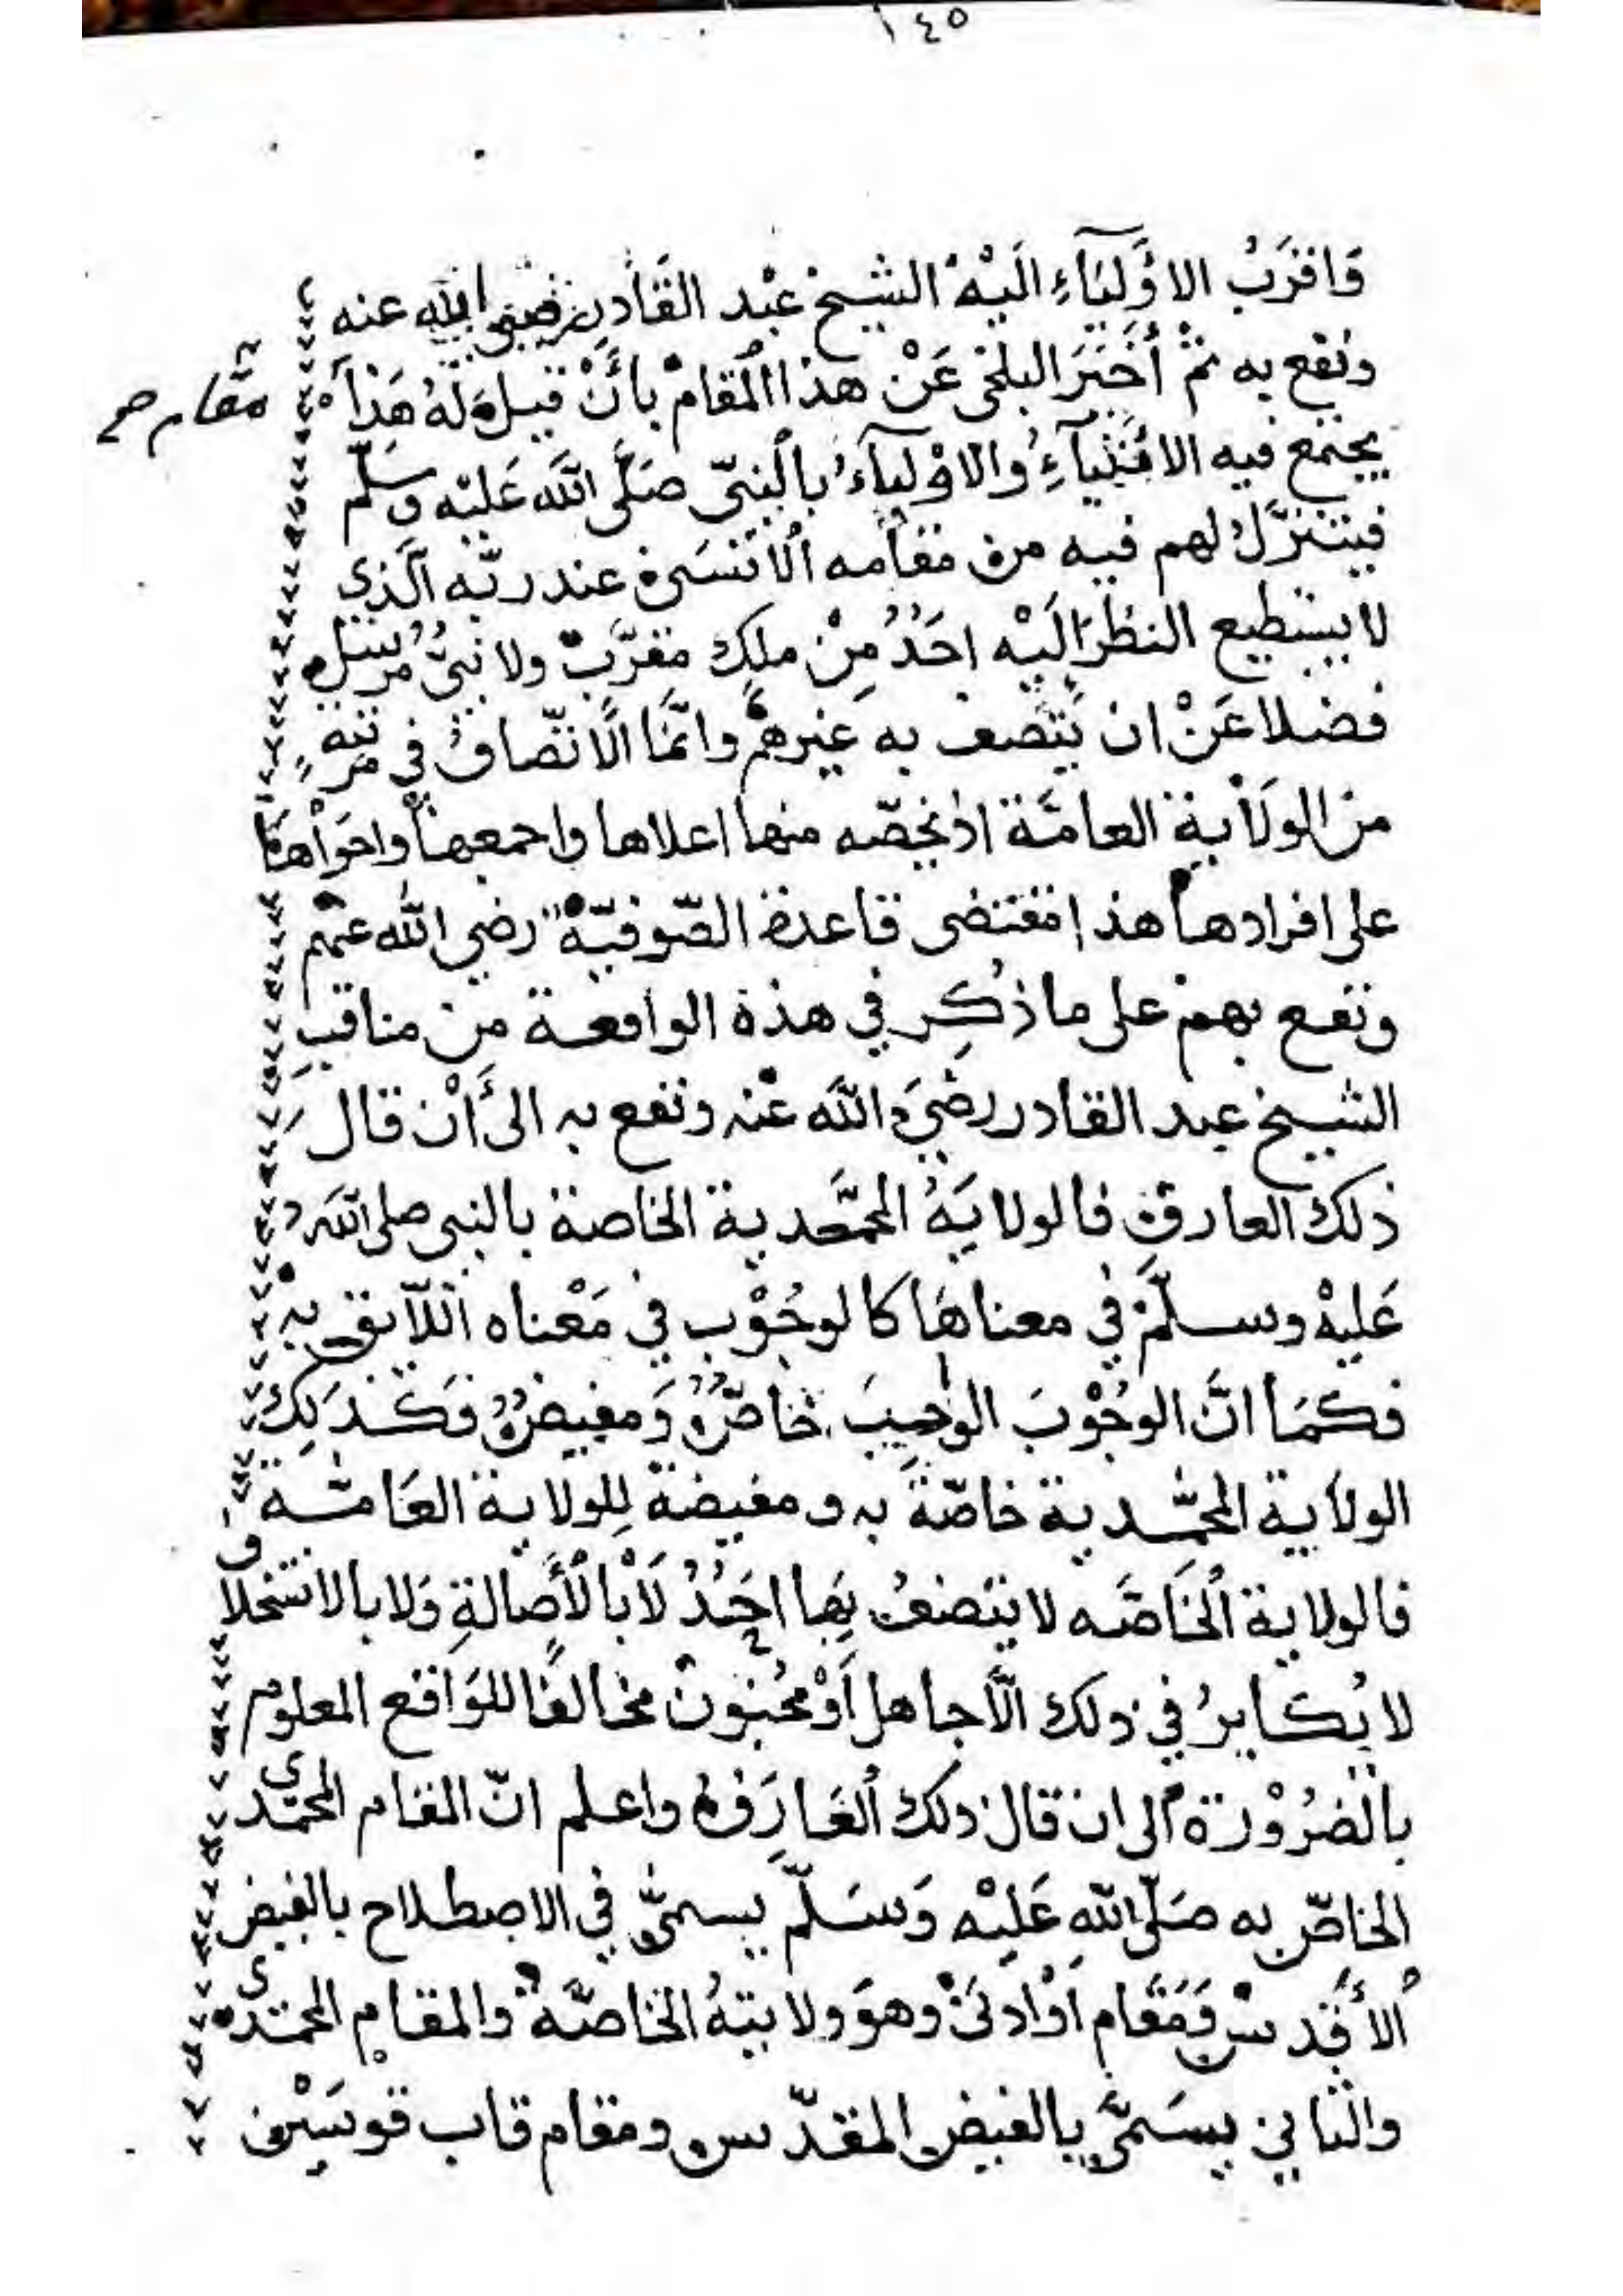 ١٤٥
وَاقرَبُ الاوَّلِيَآءِ الَيْهْ الشيخ عبْد القَادِر رضي الله عنه
ونفع به ثمْ أخبَرَ البلخى عَنْ هذا المقامْ بأنْ قيل لهُ هَذآ
مقام صح
يجتمع فيه الانبيآءُ والاوْلِيآءُ بالنبىّ صَلَّى اللَّه عَليْه وسَلّم
فيتنزّل لهم فيه من مقامه الاسنى عند ربّه الّذى
لا يستطيع النظرَ الَيْه احَدُ مِنْ ملكٍ مقرّب ولا نبىُّ مرسل
فضلا عَنْ ان يتصف به غيرهمْ وانّما الاتّصافُ فى مرتبه
من الولاية العامّة اذ يخصّه منها اعلاها واجمعها واحوَاهَا
على افرادها هذا مقتضى قاعدة الصّوفيّة رضي الله عنهم
ونفع بهمْ على ما ذُكِر في هذه الواقعة من مناقب
الشيخ عبد القادر رضيَ الله عنْه ونفع به الى أنْ قال
ذلك العارف فالولايَةُ المحمَّدية الخاصة بالنبى صلى الله
عَليْهْ وسلّمْ في معناهَا كالوجُوْب في مَعْناه اللآيق به
فكمَا انَّ الوجُوْبَ الوٰجِبَ خاصٌّ وَمفيضٌ فكَذلِك
الولاية المحمّدية خاصّة به ومفيضة لِلولاية العَامّة
فالولاية الخَاصَّه لا يتصفُ بِها احَدُ لَا بالأصالةِ وَلا بالانتحلا
لا يُكابِرُ في ذلك الّا جاهل أوْ مجْنونْ مخالفًا للوَاقع المعلوم
بالضرُوْرة الى ان قال ذلك العَارِفُ واعلم انّ المقام المحمّدى
الخاصّ به صَلّى اللّه عَلَيْه وَسَلّم يسمّى في الاصطلاح بالفيض
الأقدس وَمَقَام أوْ ادنَىْ وهوَ ولايتهُ الخاصّة والمقام المحمّدى
والثاني يسَمَّى بالفيض المقدّس ومقام قاب قوسَيْن